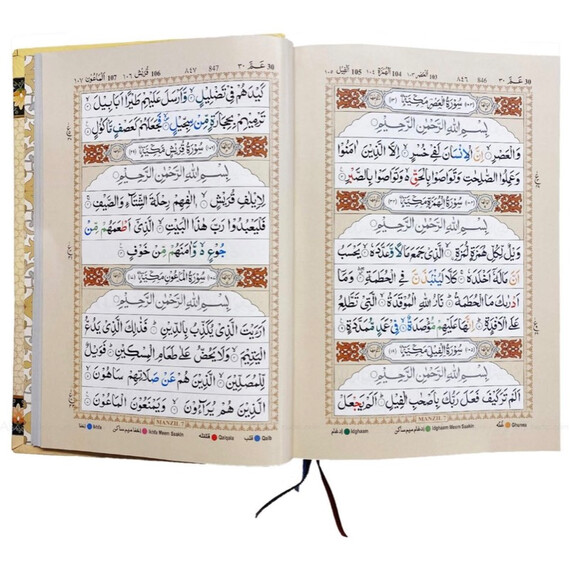 30 عَمَّ ٣٠ 846 ٨٤٦ 103 اَلْعَصْر ١٠٣ 104 اَلْهُمَزَة ١٠٤ 105 اَلْفِيْل ١٠٥
سُوْرَةُ الْعَصْرِ مَكِّيَّةٌ
بِسْمِ اللهِ الرَّحْمٰنِ الرَّحِيْمِ
وَالْعَصْرِ ۙ اِنَّ الْاِنْسَانَ لَفِيْ خُسْرٍ ۙ اِلَّا الَّذِيْنَ اٰمَنُوْا
وَعَمِلُوا الصّٰلِحٰتِ وَتَوَاصَوْا بِالْحَقِّ ۙ وَتَوَاصَوْا بِالصَّبْرِ
سُوْرَةُ الْهُمَزَةِ مَكِّيَّةٌ
بِسْمِ اللهِ الرَّحْمٰنِ الرَّحِيْمِ
وَيْلٌ لِّكُلِّ هُمَزَةٍ لُّمَزَةٍ ۙ الَّذِيْ جَمَعَ مَالًا وَّعَدَّدَهٗ ۙ يَحْسَبُ
اَنَّ مَالَهٗٓ اَخْلَدَهٗ ۚ كَلَّا لَيُنْۢبَذَنَّ فِي الْحُطَمَةِ ۖ وَمَآ
اَدْرٰىكَ مَا الْحُطَمَةُ ۗ نَارُ اللهِ الْمُوْقَدَةُ ۙ الَّتِيْ تَطَّلِعُ
عَلَى الْاَفْـِٕدَةِ ۗ اِنَّهَا عَلَيْهِمْ مُّؤْصَدَةٌ ۙ فِيْ عَمَدٍ مُّمَدَّدَةٍ
سُوْرَةُ الْفِيْلِ مَكِّيَّةٌ
بِسْمِ اللهِ الرَّحْمٰنِ الرَّحِيْمِ
اَلَمْ تَرَ كَيْفَ فَعَلَ رَبُّكَ بِاَصْحٰبِ الْفِيْلِ ۗ اَلَمْ يَجْعَلْ
MANZIL 7
Ghunna غُنّه Idghaam Meem Saakin ادغام ميم ساكن Idghaam ادغام
30 عَمَّ ٣٠ 847 ٨٤٧ 106 قُرَيْش ١٠٦ 107 اَلْمَاعُوْن ١٠٧
كَيْدَهُمْ فِيْ تَضْلِيْلٍ ۙ وَّاَرْسَلَ عَلَيْهِمْ طَيْرًا اَبَابِيْلَ ۙ
تَرْمِيْهِمْ بِحِجَارَةٍ مِّنْ سِجِّيْلٍ ۙ فَجَعَلَهُمْ كَعَصْفٍ مَّاْكُوْلٍ
سُوْرَةُ قُرَيْشٍ مَكِّيَّةٌ
بِسْمِ اللهِ الرَّحْمٰنِ الرَّحِيْمِ
لِاِيْلٰفِ قُرَيْشٍ ۙ اٖلٰفِهِمْ رِحْلَةَ الشِّتَآءِ وَالصَّيْفِ ۚ
فَلْيَعْبُدُوْا رَبَّ هٰذَا الْبَيْتِ ۙ الَّذِيْٓ اَطْعَمَهُمْ مِّنْ
جُوْعٍ ۙ وَّاٰمَنَهُمْ مِّنْ خَوْفٍ
سُوْرَةُ الْمَاعُوْنِ مَكِّيَّةٌ
بِسْمِ اللهِ الرَّحْمٰنِ الرَّحِيْمِ
اَرَءَيْتَ الَّذِيْ يُكَذِّبُ بِالدِّيْنِ ۗ فَذٰلِكَ الَّذِيْ يَدُعُّ
الْيَتِيْمَ ۙ وَلَا يَحُضُّ عَلٰى طَعَامِ الْمِسْكِيْنِ ۗ فَوَيْلٌ
لِّلْمُصَلِّيْنَ ۙ الَّذِيْنَ هُمْ عَنْ صَلَاتِهِمْ سَاهُوْنَ ۙ
الَّذِيْنَ هُمْ يُرَآءُوْنَ ۙ وَيَمْنَعُوْنَ الْمَاعُوْنَ
MANZIL 7
Qalb قلب Qalqala قلقله Ikhfa Meem Saakin اخفا ميم ساكن Ikhfa اخفا